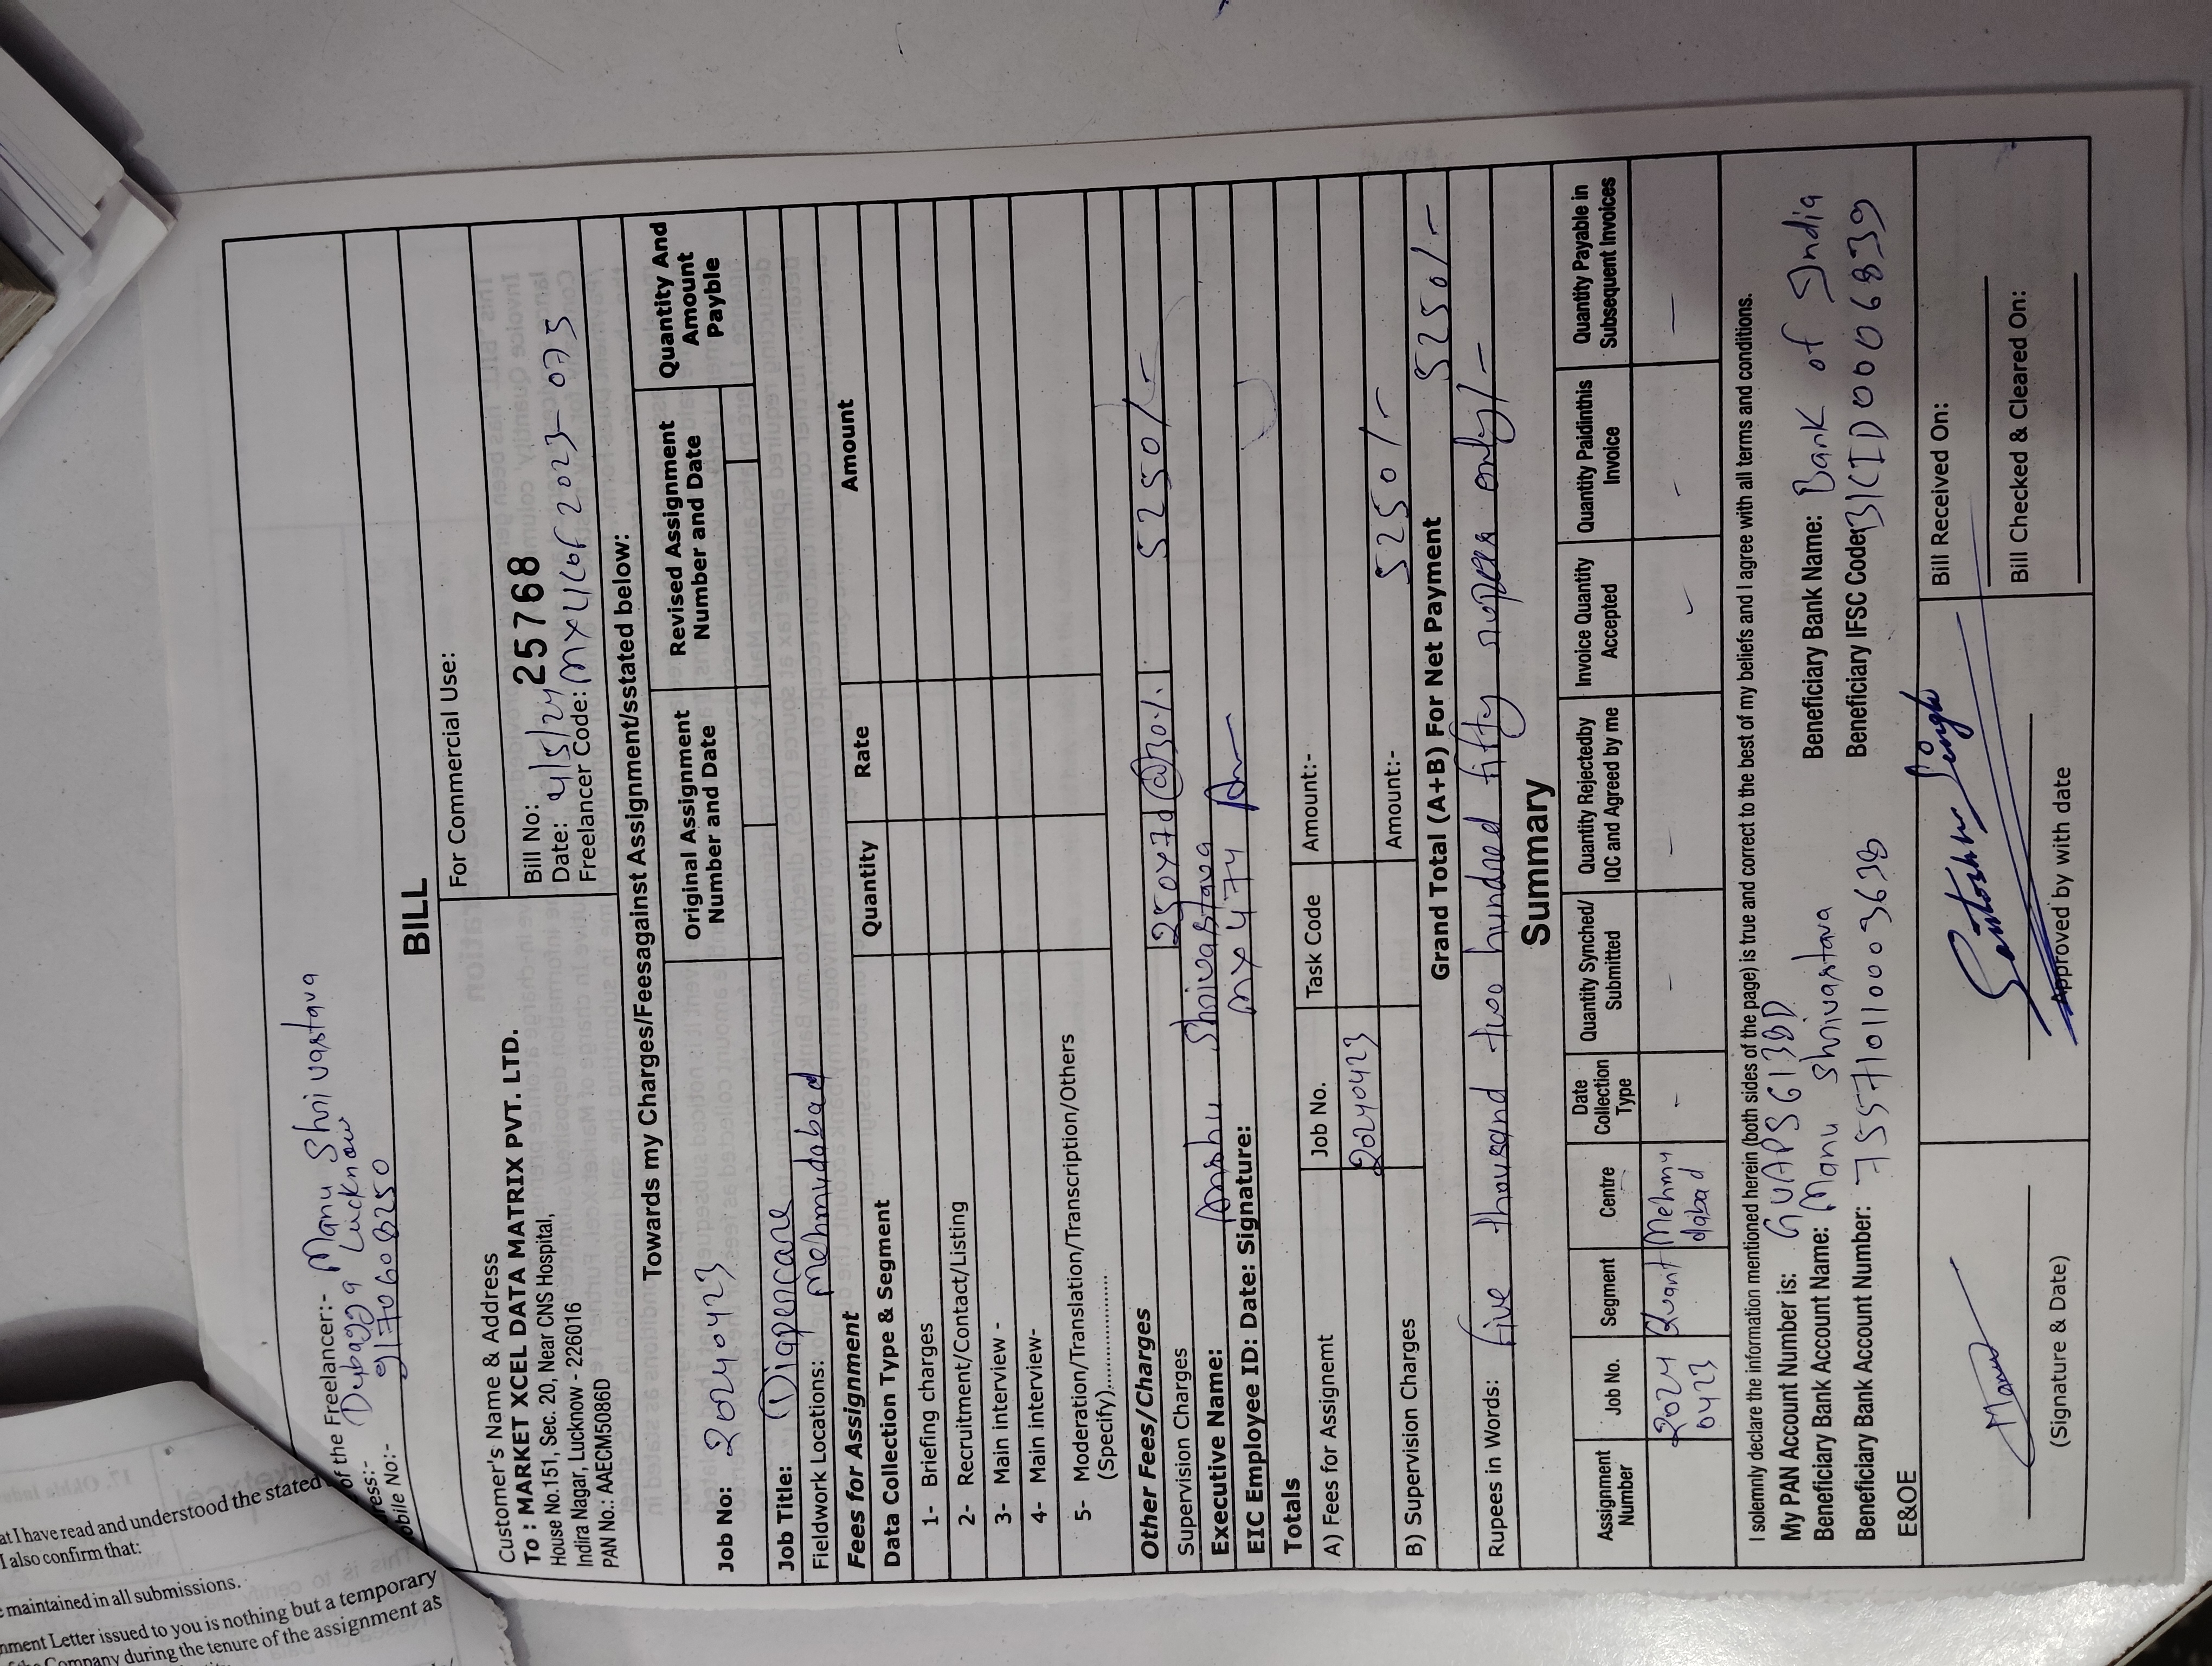 of the Freelancer:- Manu Shrivastava
ress:- Dubagga Lucknow
obile No:- 9170608250
BILL
Customer's Name & Address
To : MARKET XCEL DATA MATRIX PVT. LTD.
House No.151, Sec. 20, Near CNS Hospital,
Indira Nagar, Lucknow - 226016
PAN No.: AAECM5086D
For Commercial Use:
Bill No: 25768
Date: 4/5/24
Freelancer Code:
Towards my Charges/Feesagainst Assignment/sstated below:
Job No: 20240423
Original Assignment Number and Date
Revised Assignment Number and Date
Quantity And Amount Payble
Job Title: Diapercare
Fieldwork Locations: Mehmudabad
Fees for Assignment
Data Collection Type & Segment
Quantity
Rate
Amount
1- Briefing charges
2- Recruitment/Contact/Listing
3- Main interview -
4- Main interview-
5- Moderation/Translation/Transcription/Others
(Specify)..................
Other Fees/Charges
Supervision Charges 250×70@30% 5250/-
Executive Name: Anshu Shrivastava
EIC Employee ID: Date: Signature: MX 474
Totals
Job No.
Task Code
A) Fees for Assignemt
Amount:-
20240423
B) Supervision Charges
Amount:- 5250/-
Grand Total (A+B) For Net Payment 5250/-
Rupees in Words: five thousand two hundred fifty rupees only/-
Summary
Assignment Number
Job No.
Segment
Centre
Date Collection Type
Quantity Synched/ Submitted
Quantity Rejectedby IQC and Agreed by me
Invoice Quantity Accepted
Quantity Paidinthis Invoice
Quantity Payable in Subsequent Invoices
2024 0423 Quant Mehmu dabad - - - - - -
I solemnly declare the information mentioned herein (both sides of the page) is true and correct to the best of my beliefs and I agree with all terms and conditions.
My PAN Account Number is: GVAPS6138D
Beneficiary Bank Account Name: Manu Shrivastava
Beneficiary Bank Name: Bank of India
Beneficiary Bank Account Number: 755710110003638
Beneficiary IFSC Code: BKID0006839
E&OE
Manu
(Signature & Date)
Santoshh Singh
Approved by with date
Bill Received On:
Bill Checked & Cleared On:
at I have read and understood the stated
I also confirm that:
maintained in all submissions.
nment Letter issued to you is nothing but a temporary
of the Company during the tenure of the assignment as